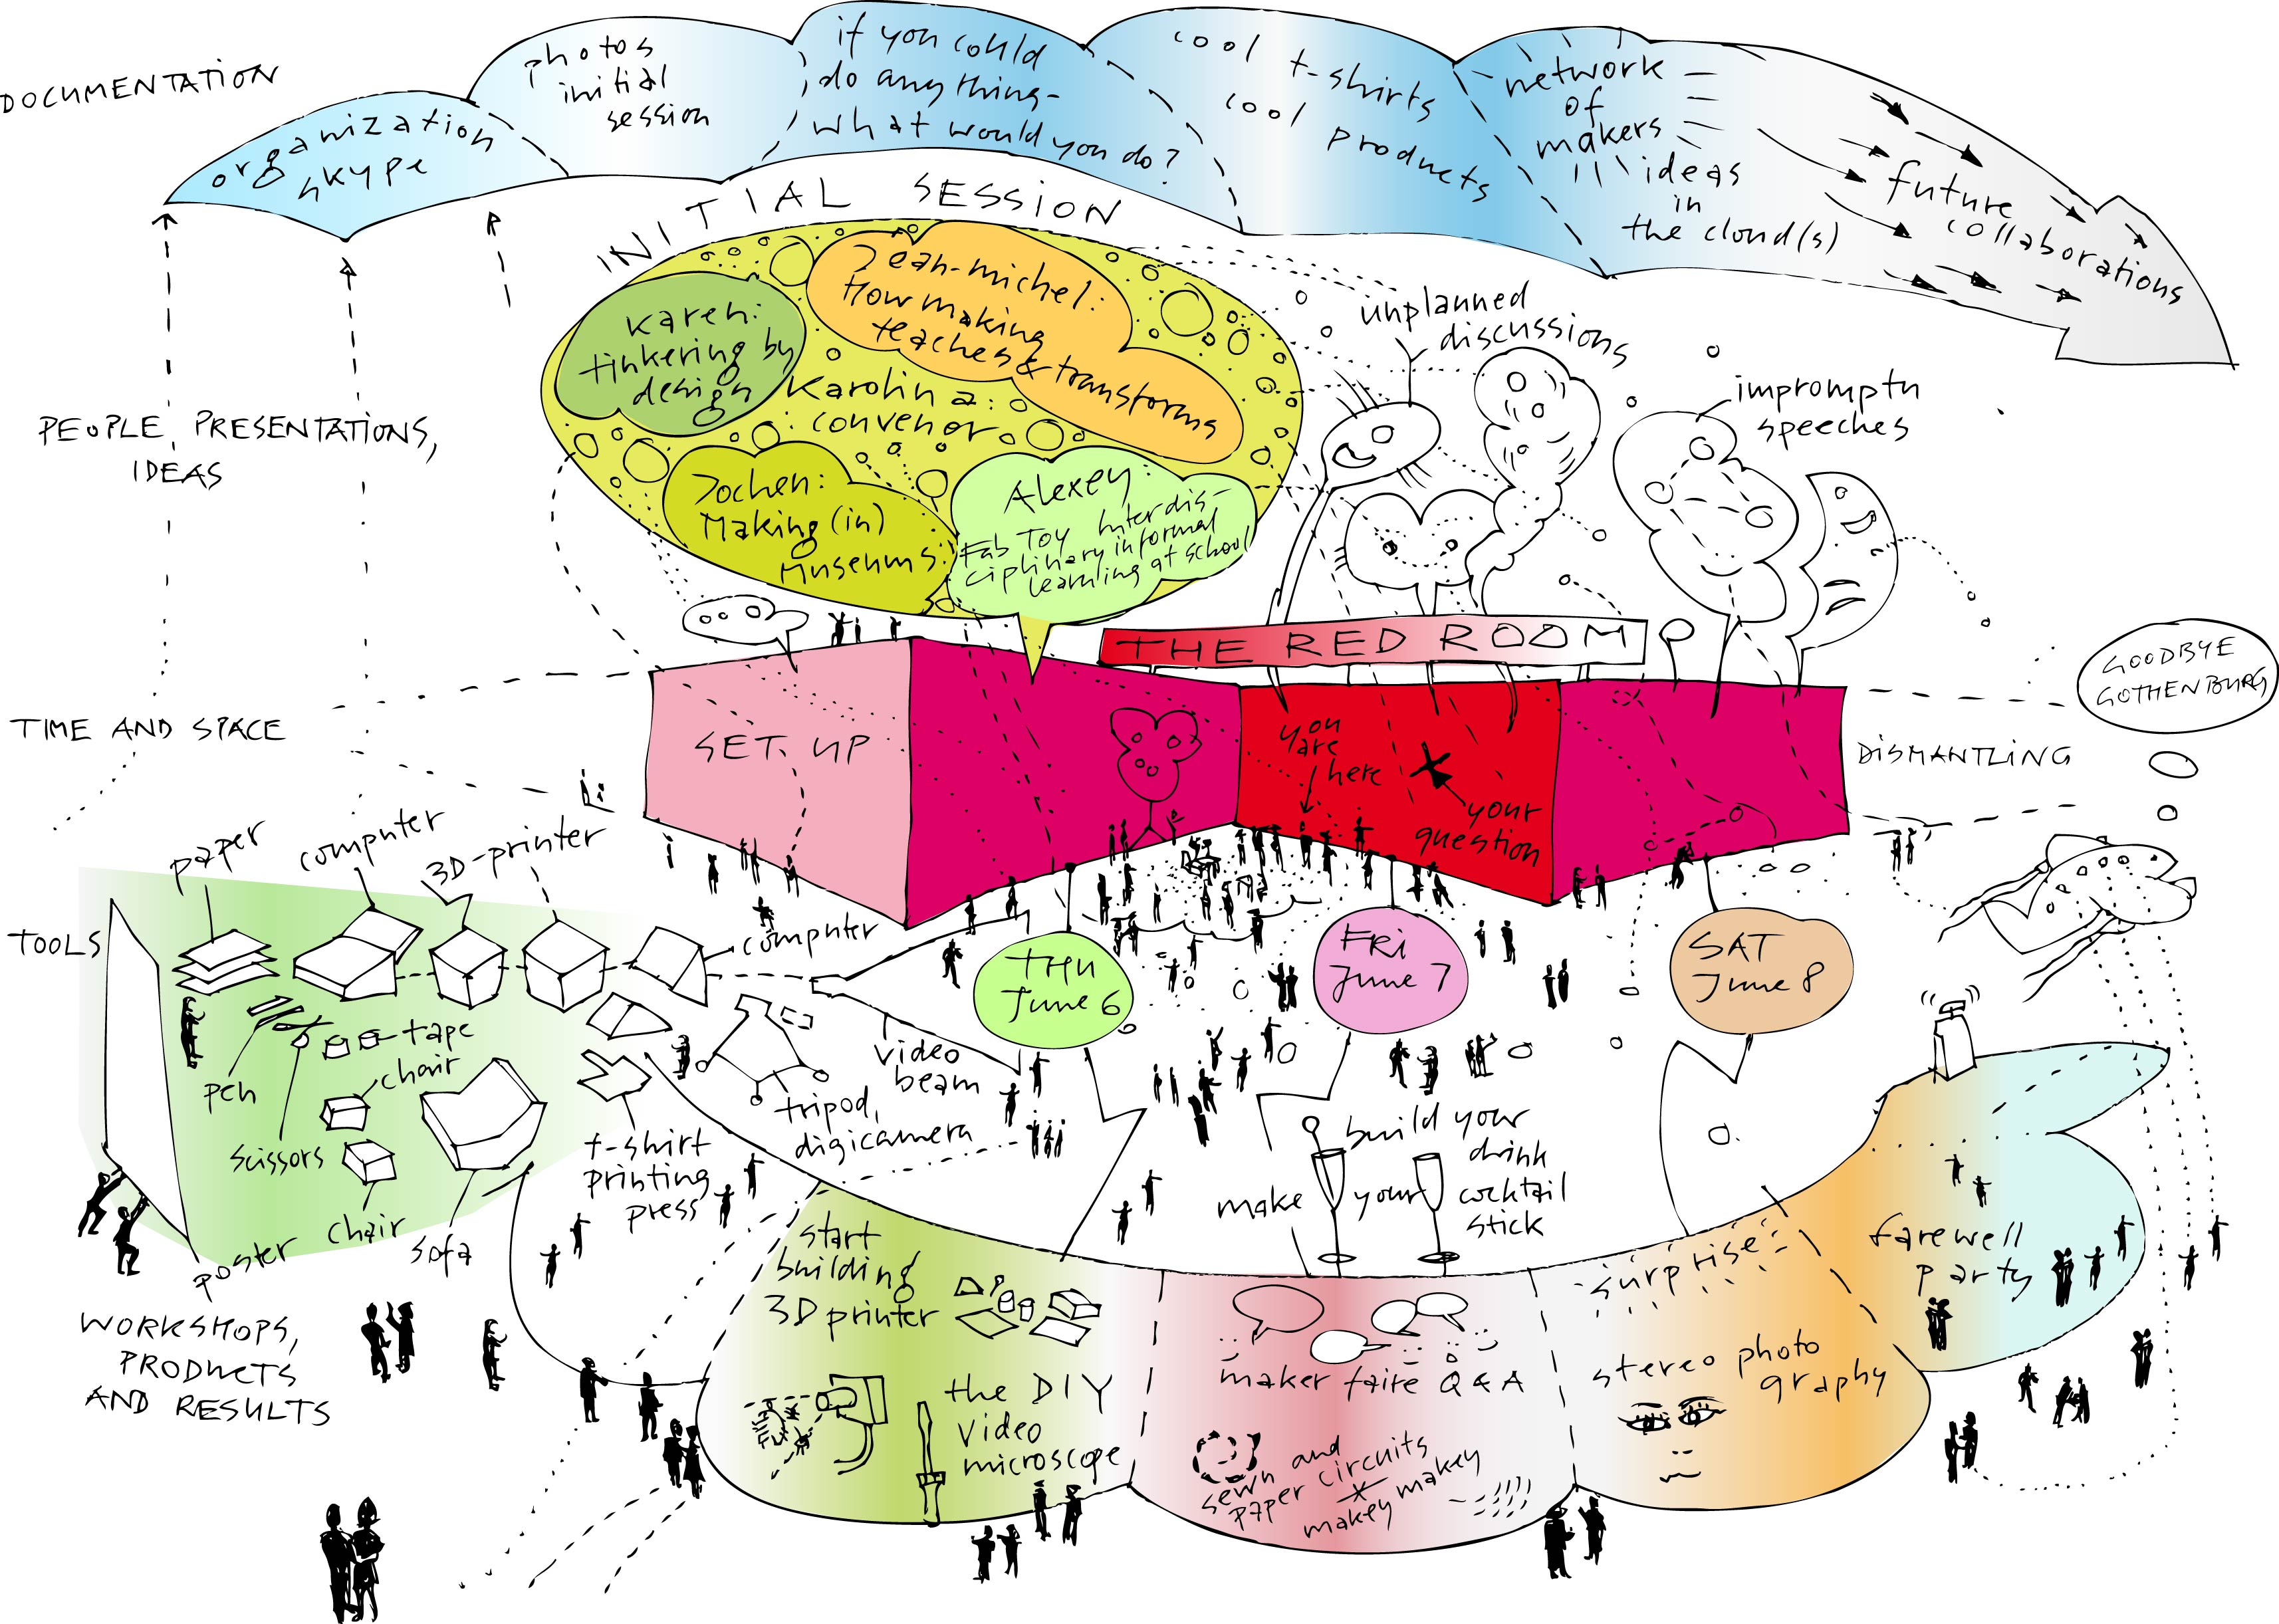 DOCUMENTATION
organization
skype
photos
initial
session
if you could
do anything-
what would you do?
cool t-shirts
cool products
network
of
makers
ideas
in
the cloud(s)
future
collaborations
INITIAL SESSION
PEOPLE, PRESENTATIONS,
IDEAS
Karen:
tinkering by
design
Jean-michel:
How making
teaches & transforms
Karolina:
convenor
Jochen:
Making (in)
Museums:
Alexey:
Fab Toy Interdis-
ciplinary informal
learning at school
unplanned
discussions
impromptu
speeches
THE RED ROOM
GOODBYE
GOTHENBURG
TIME AND SPACE
SET UP
you
are
here
your
question
DISMANTLING
TOOLS
paper
computer
3D-printer
computer
pen
scissors
tape
chair
chair
sofa
poster
t-shirt
printing
press
tripod,
digicamera
video
beam
THU
June 6
FRI
June 7
SAT
June 8
build your
drink
make your cocktail
stick
WORKSHOPS,
PRODUCTS
AND RESULTS
start
building
3D printer
the DIY
video
microscope
maker faire Q & A
sewn and
paper circuits
makey makey
surprise
stereo photo
graphy
farewell
party